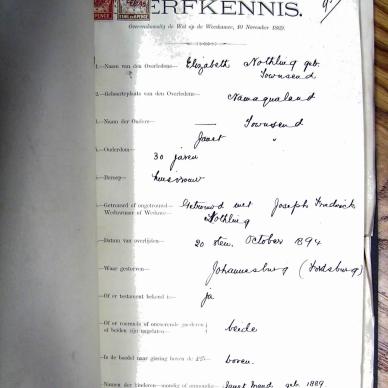 ERFKENNIS.
Overeenkomstig de Wet op de Weeskamer, 10 November 1869.
1.—Naam van den Overledene— Elizabeth Nothling geb.
Townsend
2.—Geboorteplaats van den Overledene— Namaqualand
3.—Naam der Ouders— — Townsend
Janet "
—Ouderdom—
30 jaren
—Beroep— huisvrouw
—Getrouwd of ongetrouwd— Getrouwd met Joseph Fredrick
Weduwnaar of Weduwe— Nothling
—Datum van overlijden—
20 sten October 1894
Waar gestorven— Johannesburg (Fordsburg)
—Of er testament bekend is— ja
—Of er roerende of onroerende goederen
of beiden zijn nagelaten— beide
—Is de boedel naar gissing boven de £25— boven.
Namen der kinderen— Janet geb. 1889